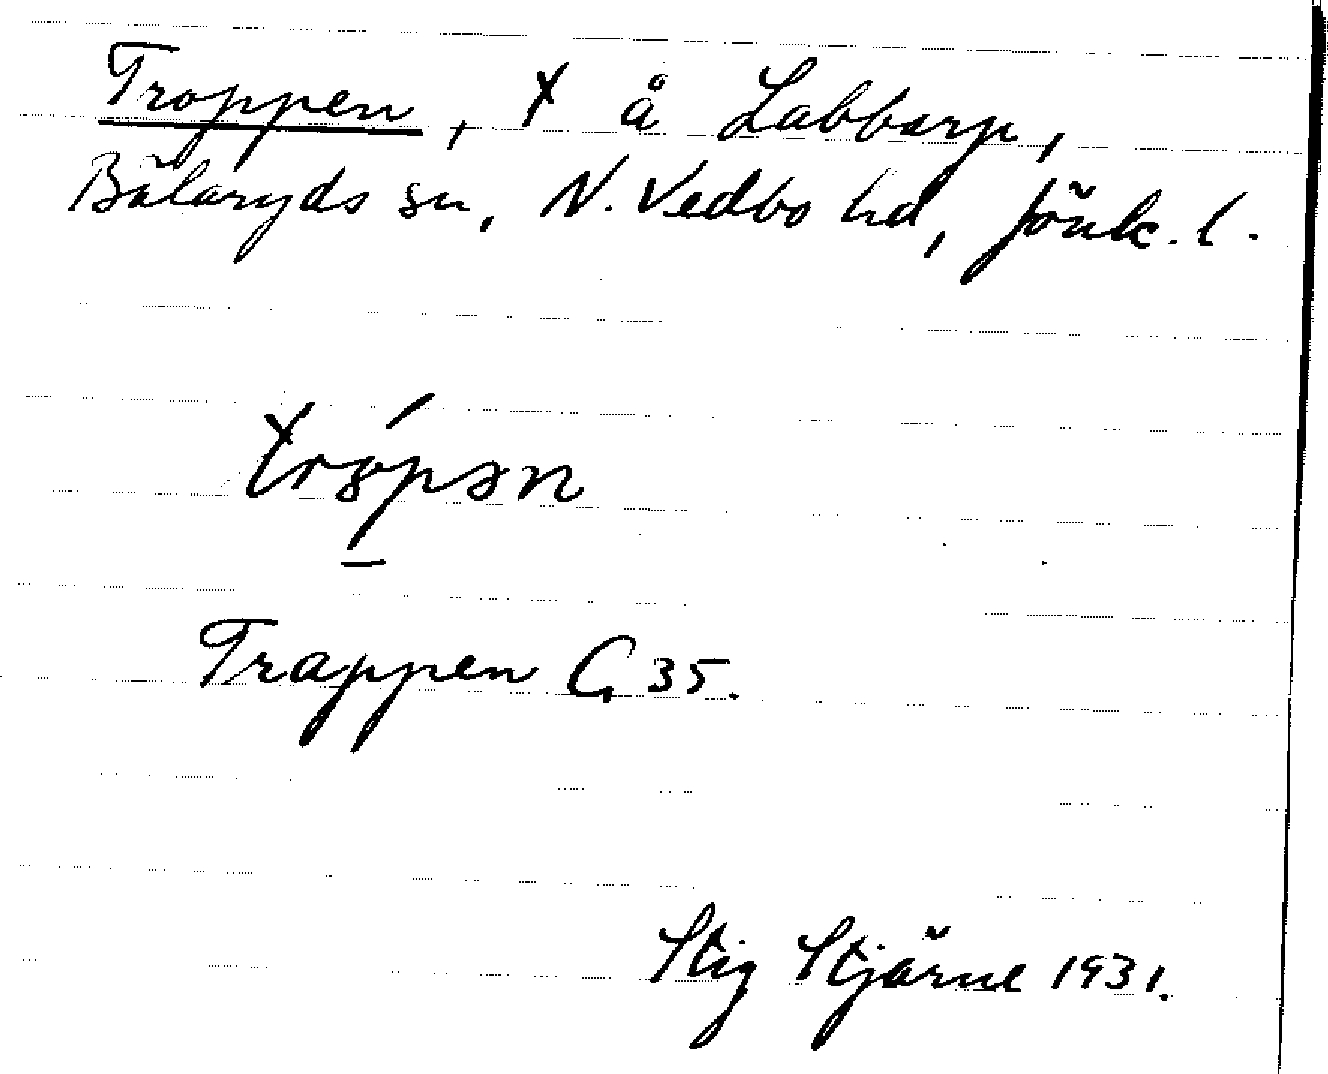 Troppen, t å Labbarp,
Bälaryds sn, N. Vedbo hd, Jönk. l.
Trappen G. 35.
Stig Stjärne 1931.